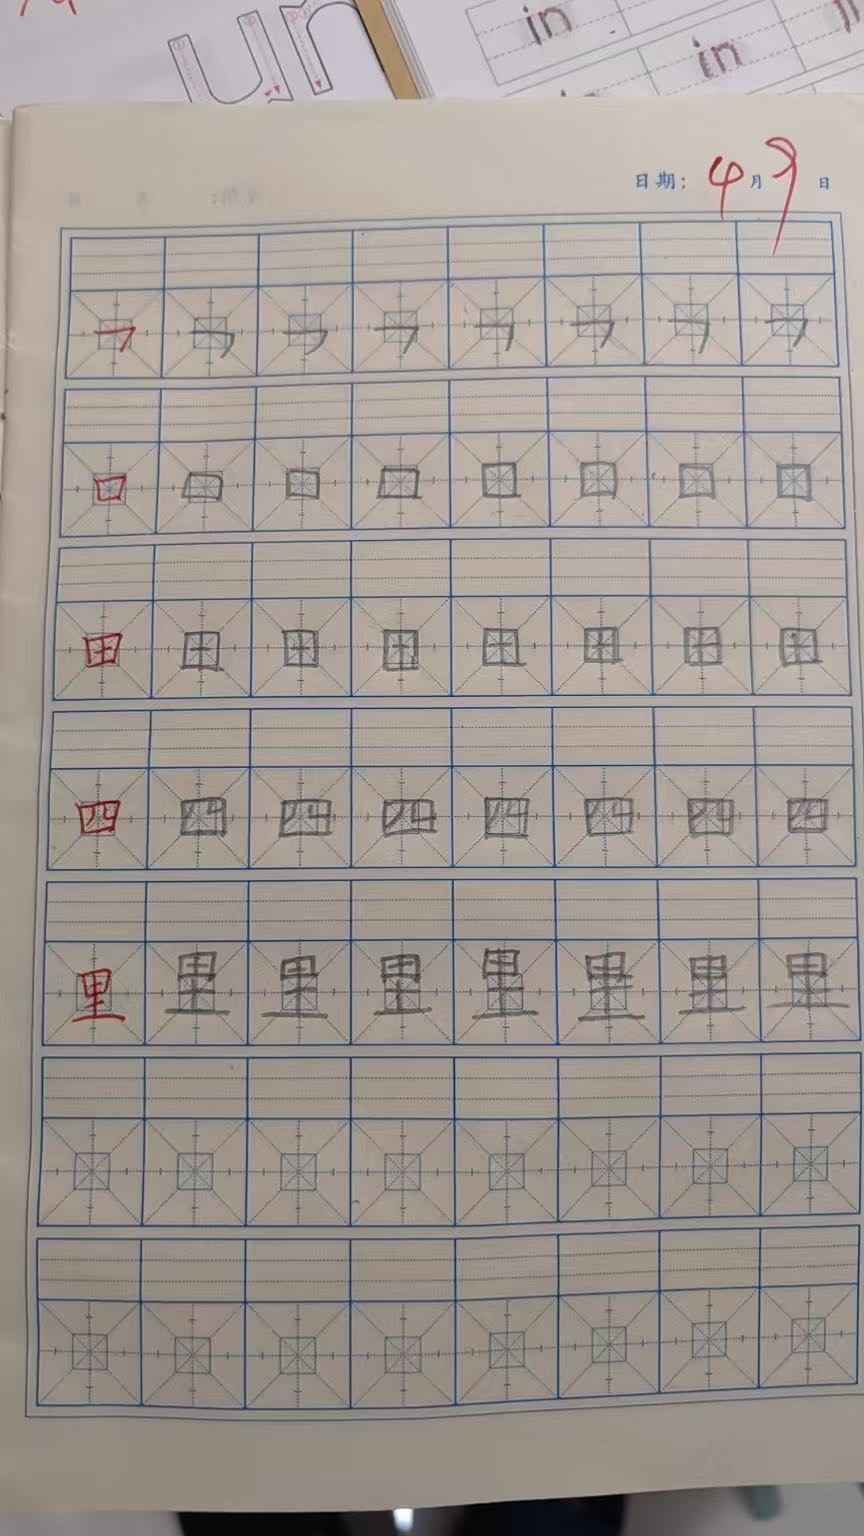 un
in
in
日期: 4月9日
𠃍 𠃍 𠃍 𠃍 𠃍 𠃍 𠃍 𠃍
口 口 口 口 口 口 口 口
田 田 田 田 田 田 田 田
四 四 四 四 四 四 四 四
里 里 里 里 里 里 里 里